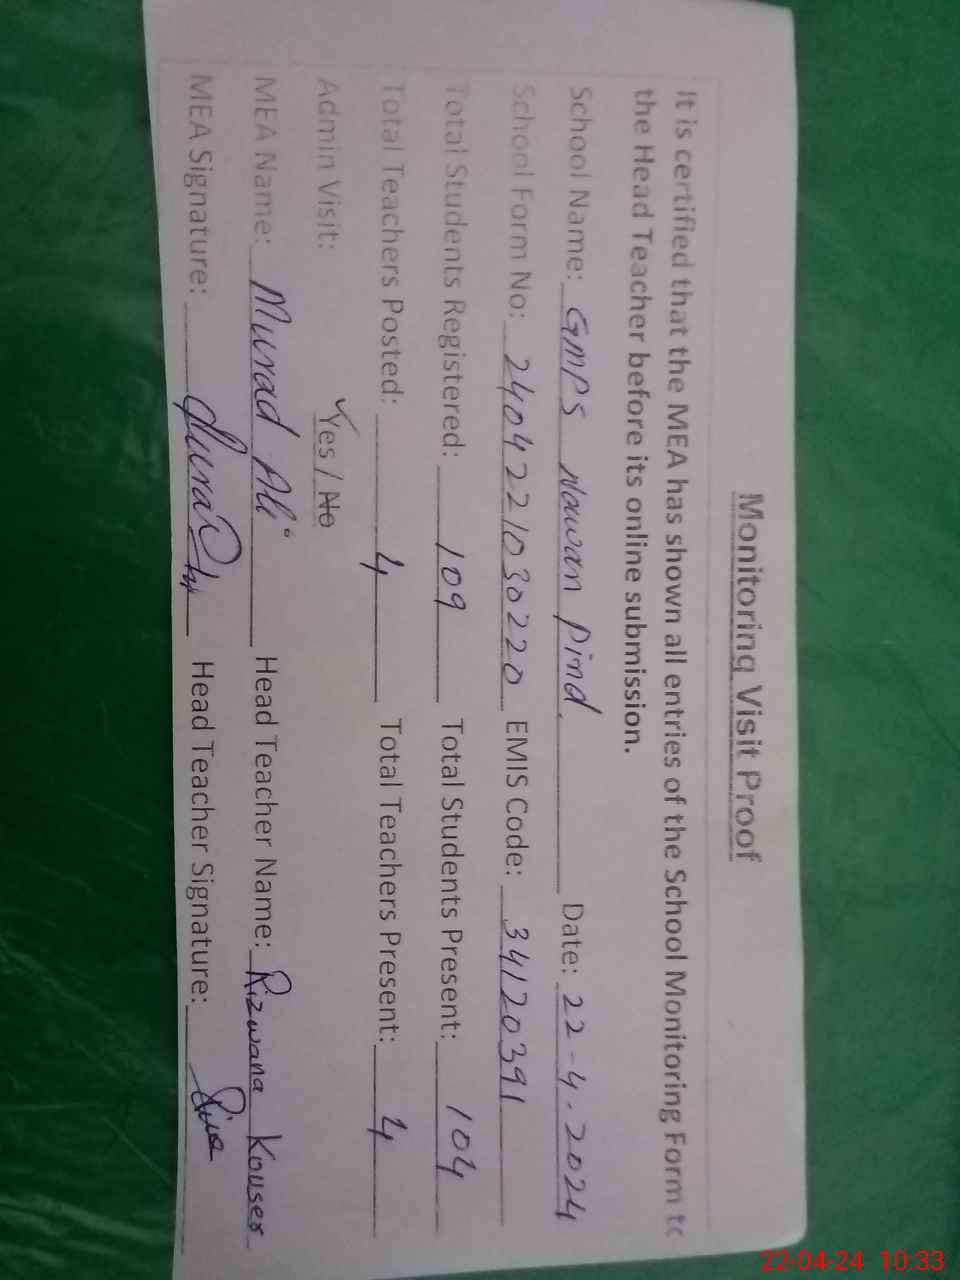 Monitoring Visit Proof
It is certified that the MEA has shown all entries of the School Monitoring Form to
the Head Teacher before its online submission.
School Name: GMPS Nawan Pind. Date: 22-4-2024
School Form No: 2404221030220 EMIS Code: 34120391
Total Students Registered: 109 Total Students Present: 104
Total Teachers Posted: 4 Total Teachers Present: 4
Admin Visit: Yes / No
MEA Name: Murad Ali Head Teacher Name: Rizwana Kouser
MEA Signature: Head Teacher Signature:
22-04-24 10:33